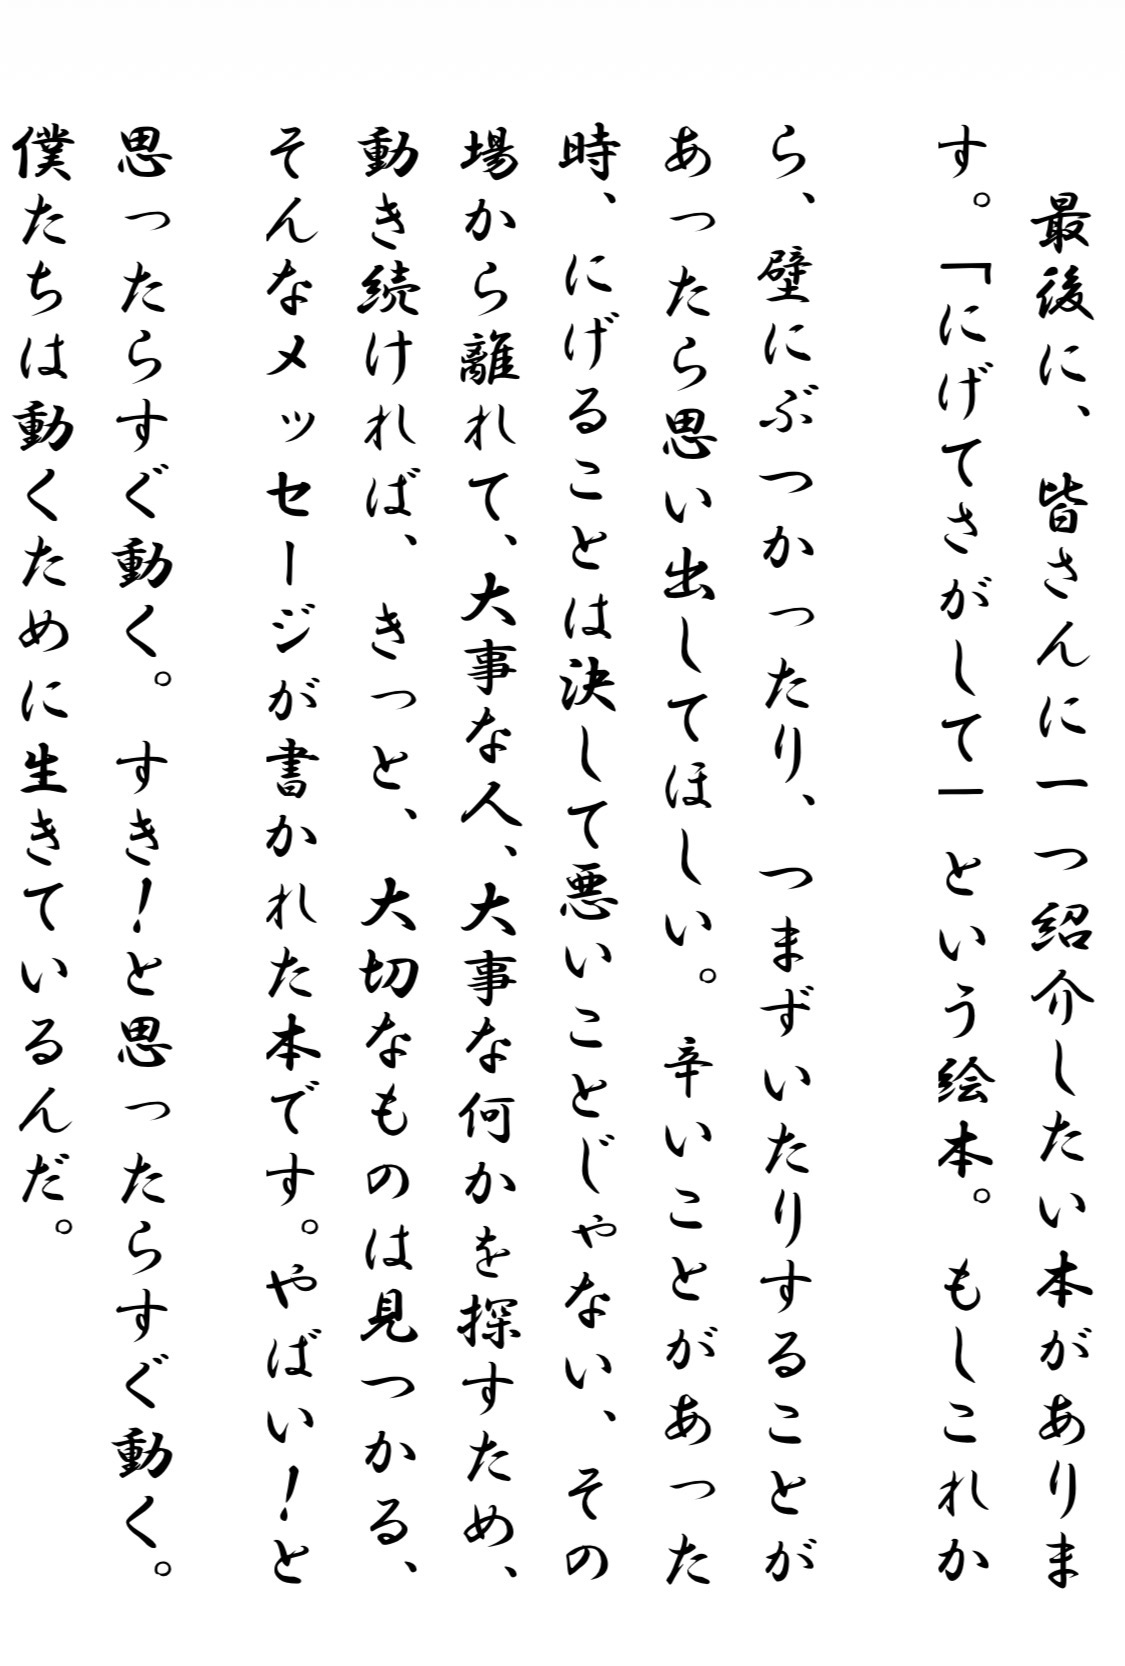 最後に、皆さんに一つ紹介したい本がありま
す。「にげてさがして」という絵本。もしこれか
ら、壁にぶつかったり、つまずいたりすることが
あったら思い出してほしい。辛いことがあった
時、にげることは決して悪いことじゃない、その
場から離れて、大事な人、大事な何かを探すため、
動き続ければ、きっと、大切なものは見つかる、
そんなメッセージが書かれた本です。やばい！と
思ったらすぐ動く。すき！と思ったらすぐ動く。
僕たちは動くために生きているんだ。